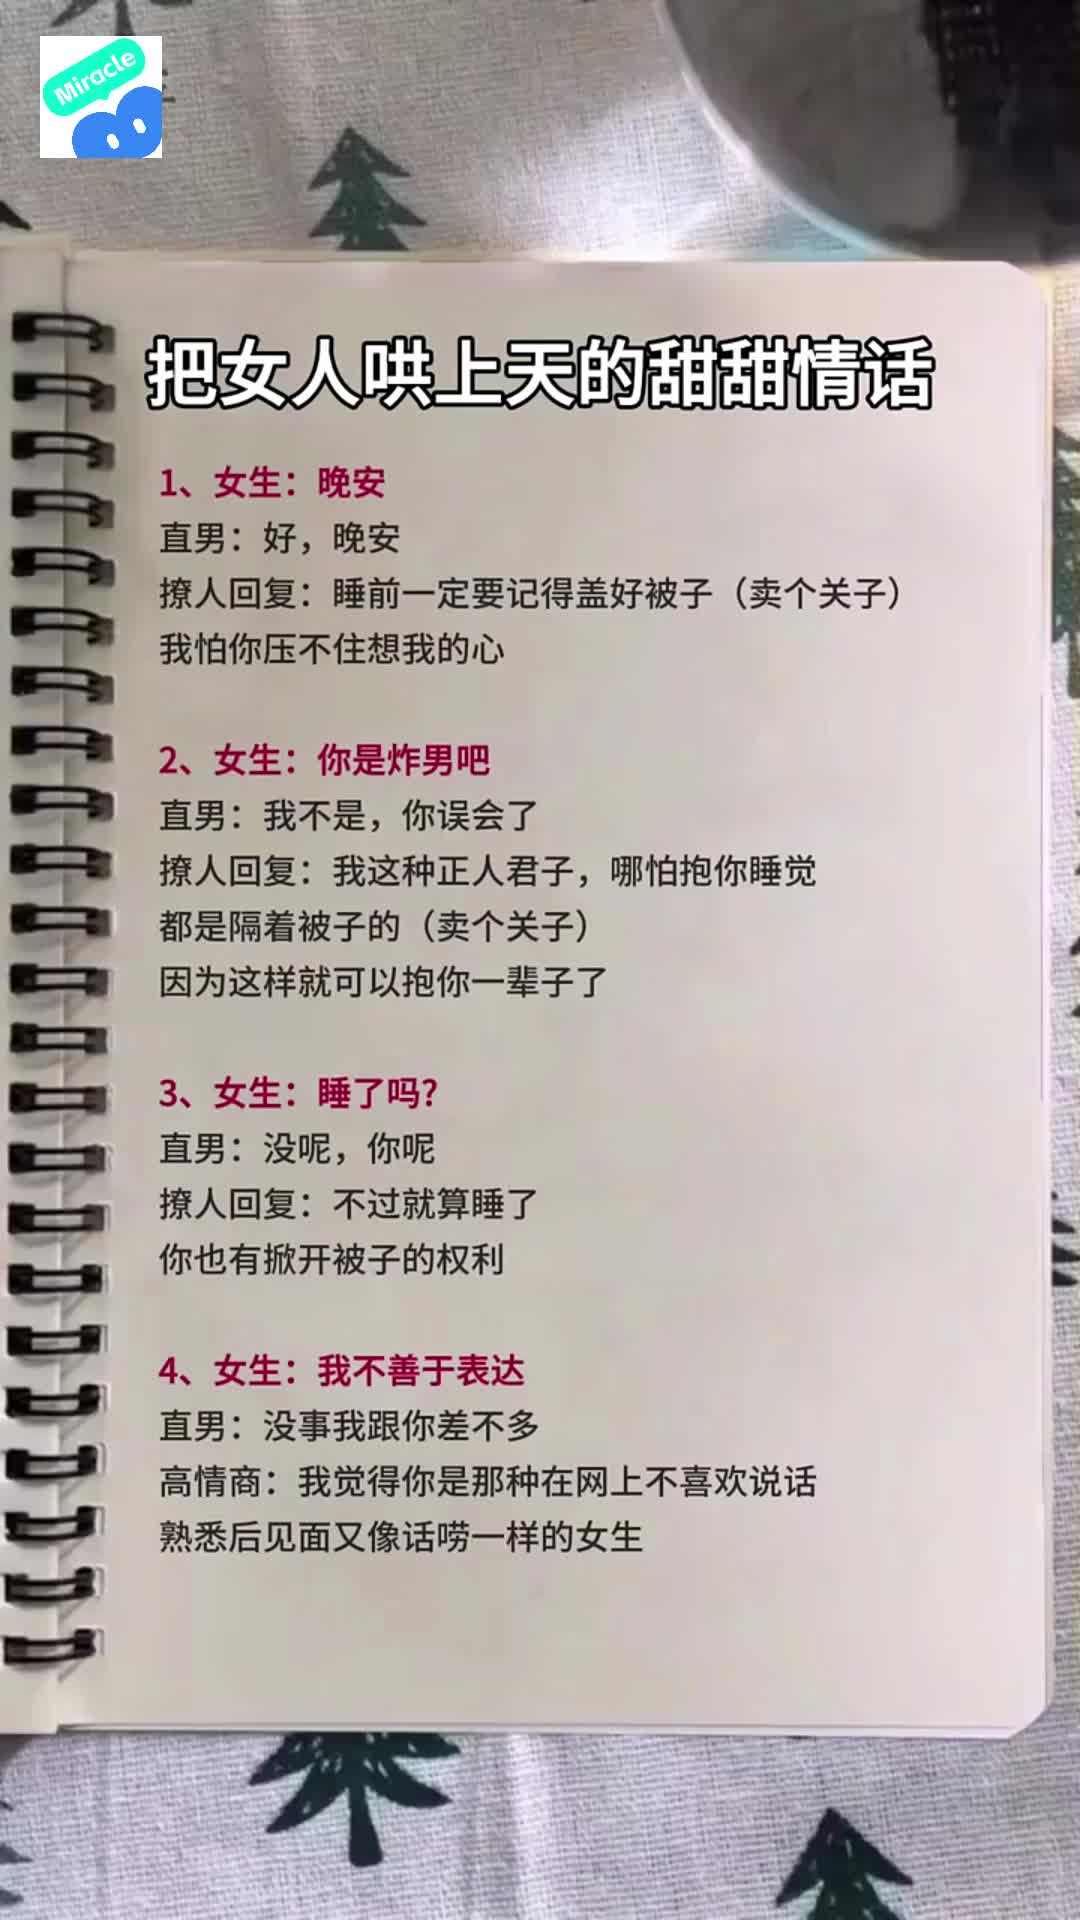 Miracle
把女人哄上天的甜甜情话
1、女生：晚安
直男：好，晚安
撩人回复：睡前一定要记得盖好被子（卖个关子）
我怕你压不住想我的心
2、女生：你是炸男吧
直男：我不是，你误会了
撩人回复：我这种正人君子，哪怕抱你睡觉
都是隔着被子的（卖个关子）
因为这样就可以抱你一辈子了
3、女生：睡了吗?
直男：没呢，你呢
撩人回复：不过就算睡了
你也有掀开被子的权利
4、女生：我不善于表达
直男：没事我跟你差不多
高情商：我觉得你是那种在网上不喜欢说话
熟悉后见面又像话唠一样的女生